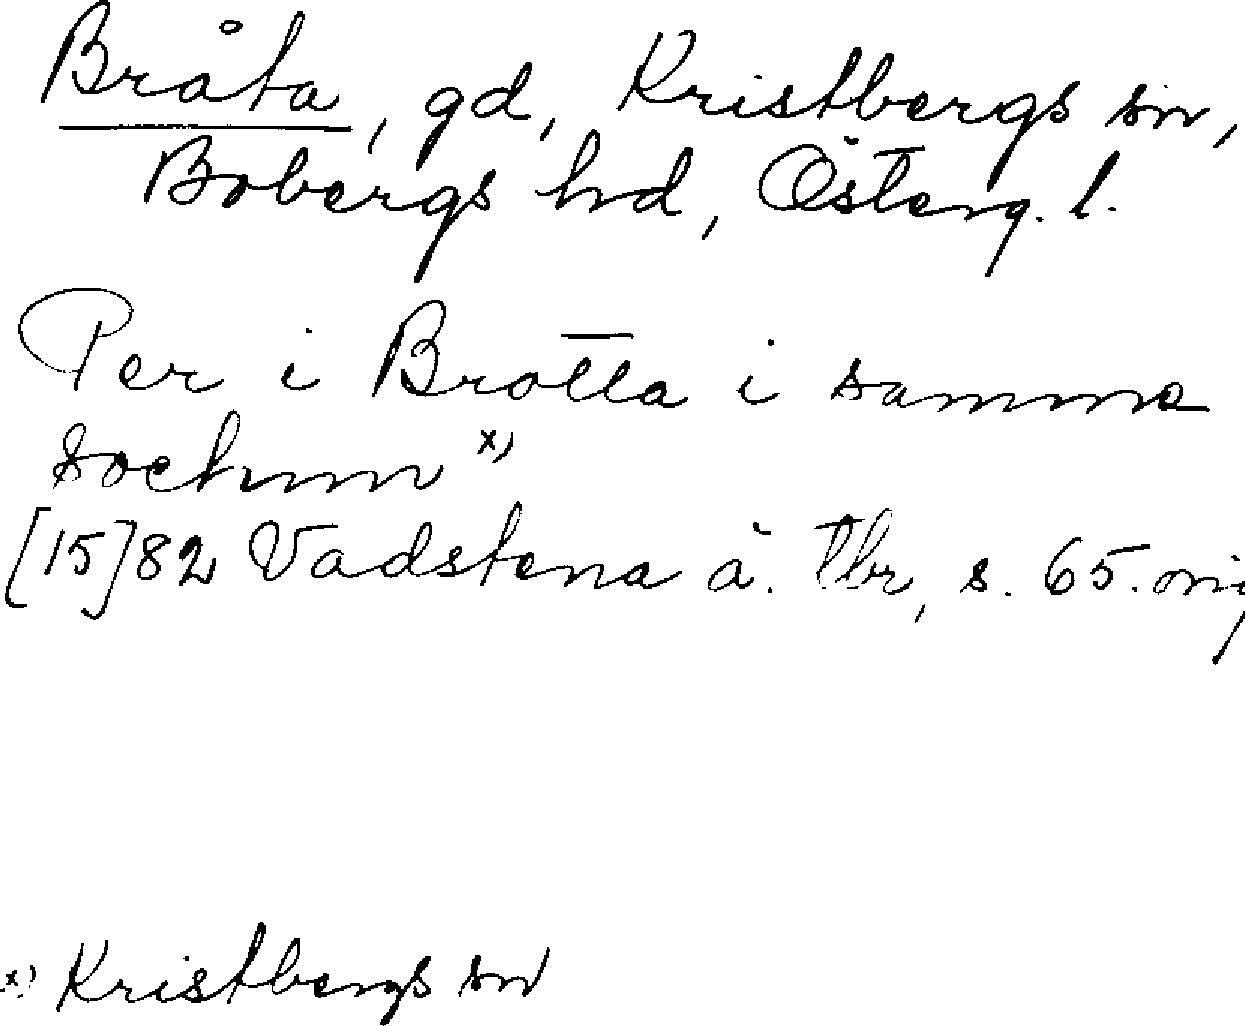 Bråta, gd, Kristbergs sn,
Bobergs hd, Österg. l.
Per i Brotta i samma
sochnn x)
[15]82 Vadstena ä. Tbr, s. 65. orig
x) Kristbergs sn